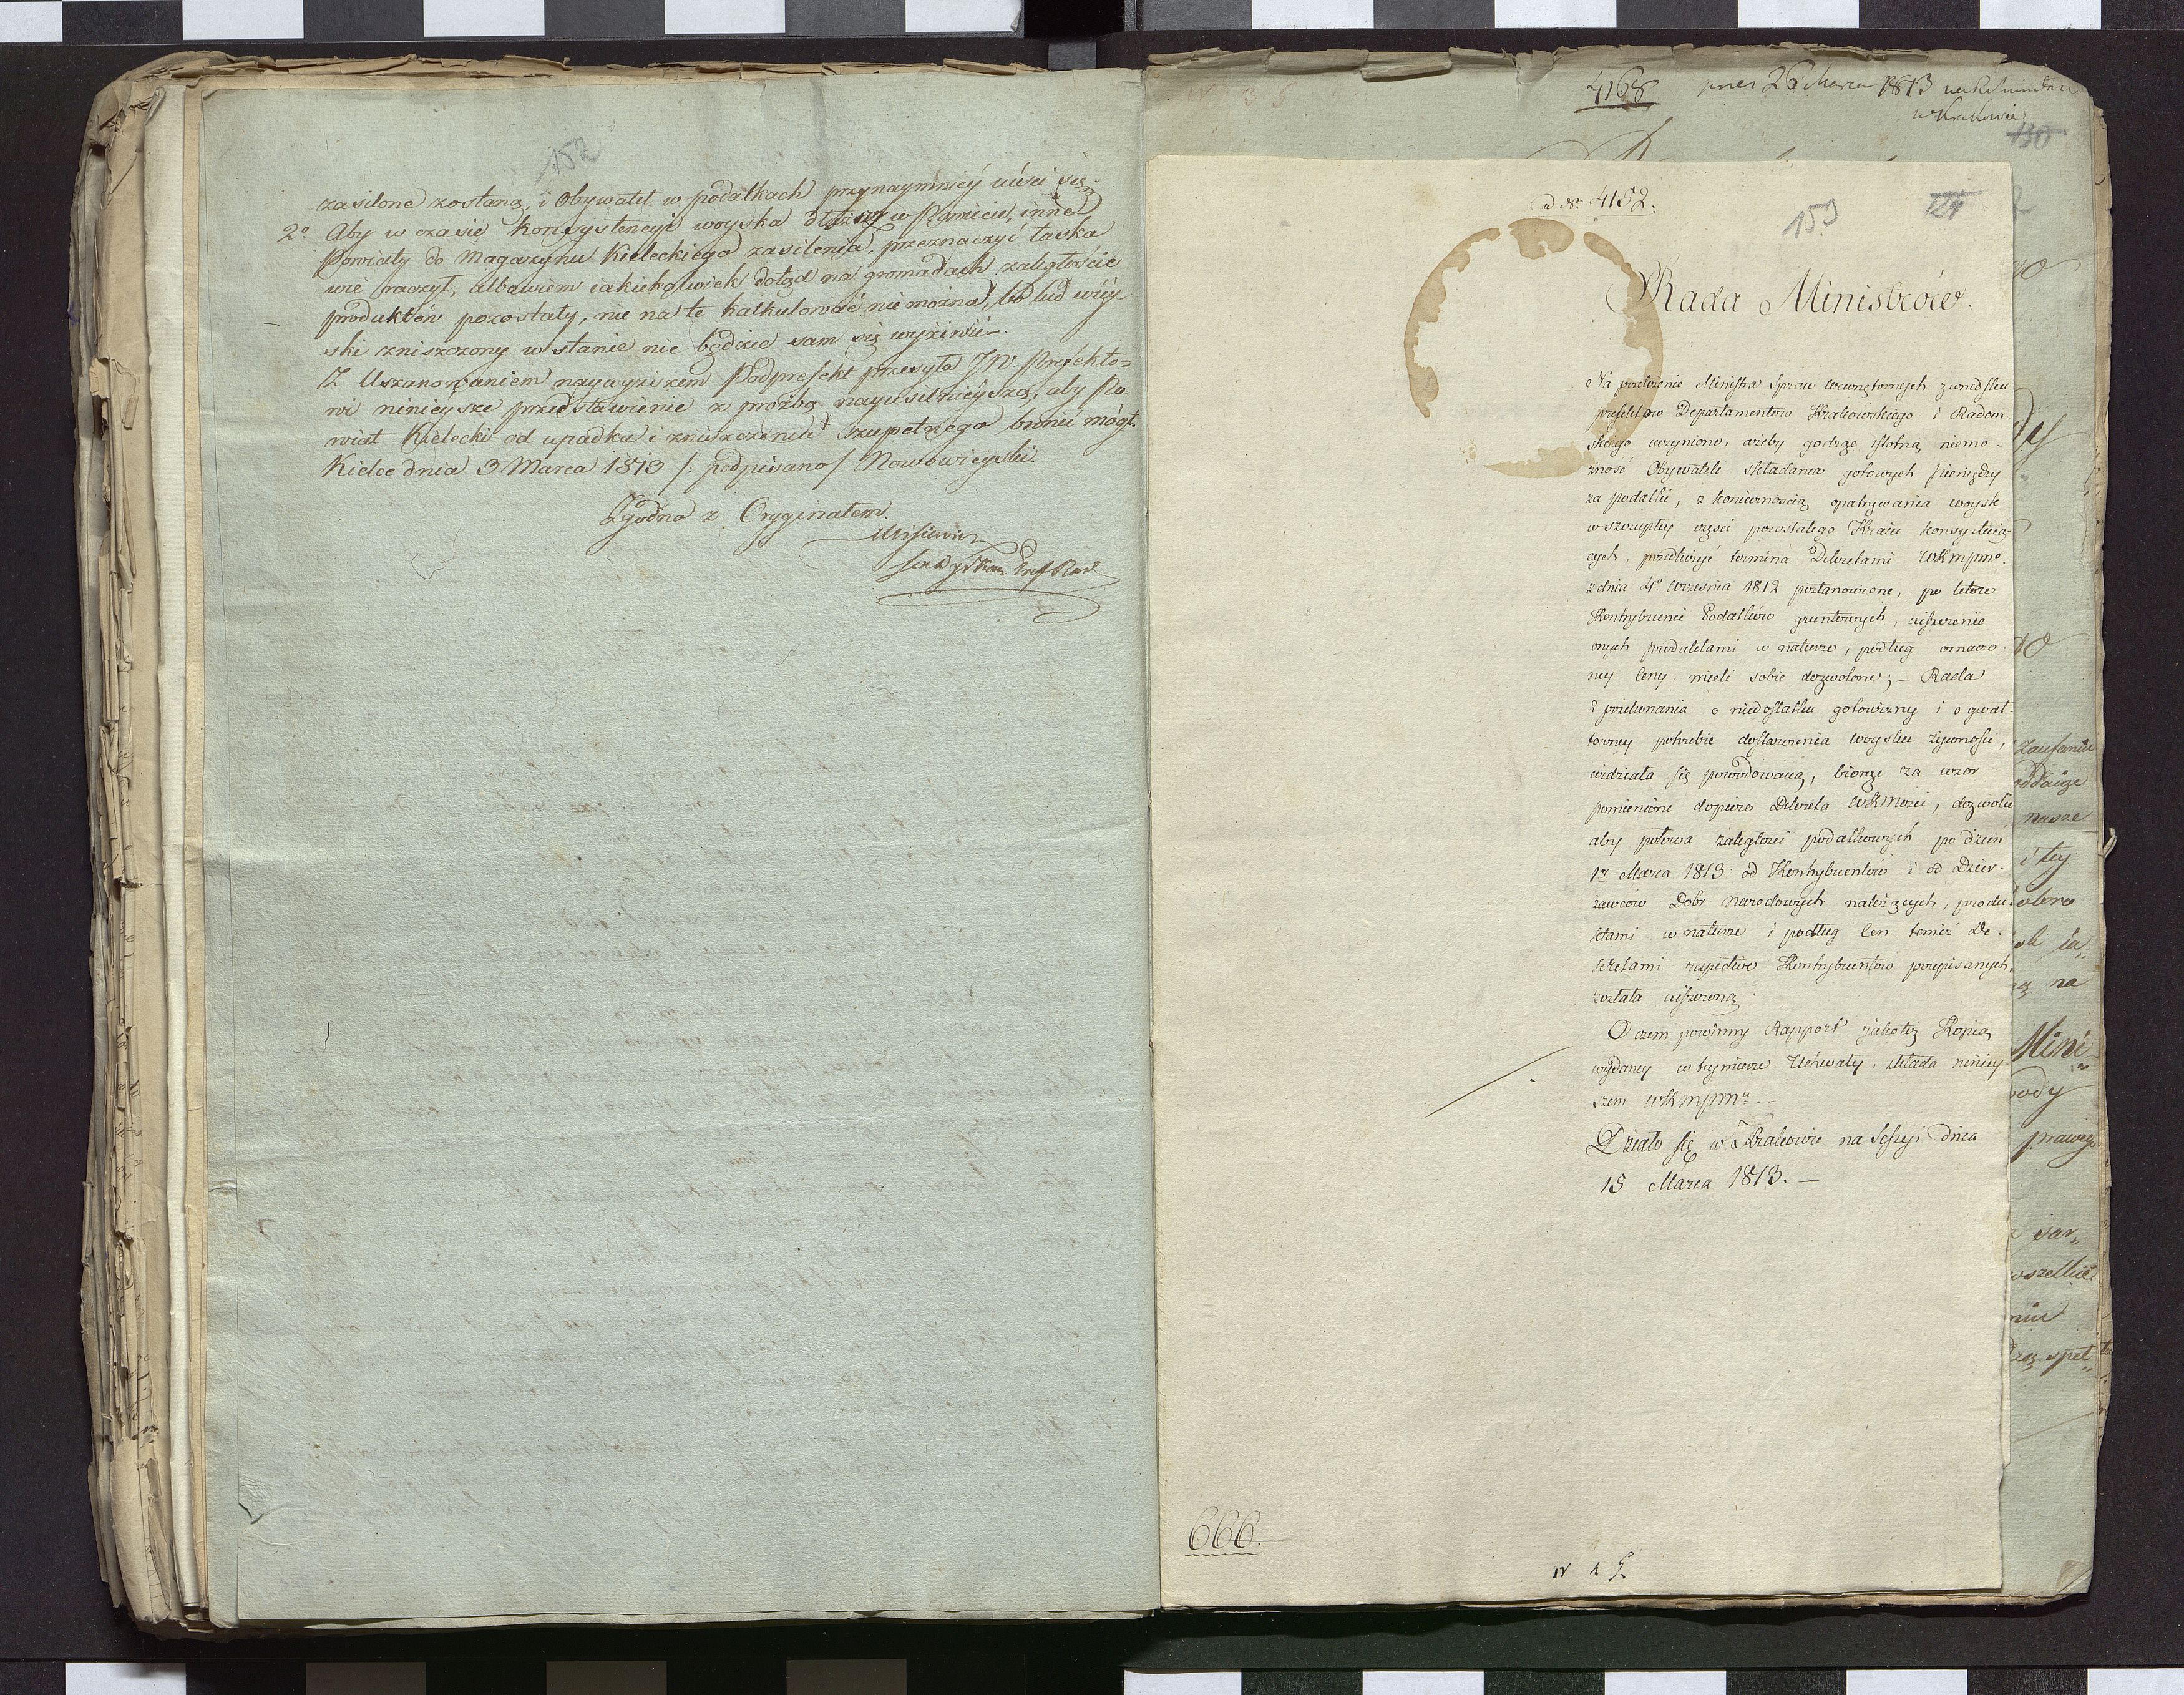 152
zasilone zostaną, i Obywatel w podatkach przynaymnićy uiści się.
2º Aby w czasie konsystencyi woyska w Powiecie, inne
Powiaty do Magazynu Kieleckiego zasilenia, przeznaczyć łaska
wie raczył, albowiem iakiekolwiek dotąd na gromadach zaległoście
produktów pozostały, nie na te kalkulować nie można, bo lud wiey-
ski zniszczony w stanie nie będzie sam się wyżywić.
Z Uszanowaniem naywyższem Podprefekt przesyła JW. Prefekto=
wi ninieysze przedstawienie z proźbą nayusilnieyszą, aby Po-
wiat Kielecki od upadku i zniszczenia zupełnego bronić mógł.
Kielce dnia 3 Marca 1813 /: podpisano/ Nowowieyski.
Zgodno z Oryginałem.
4168
pres 26 Marca 1813
w Krakowie
130
ad Nr. 4152.
153
124
Rada Ministrów.
Na przełożenie Ministra Spraw Wewnętrznych z wniosku
prefektów Departamentów Krakowskiego i Radom-
skiego uczynione, ażeby godząc istotną niemo-
żność Obywateli składania gotowych pieniędzy
za podatki, z koniecznością opatrywania woysk
w szczupłey części pozostałego Kraiu konsystuią-
cych, przedłużyć termina Dekretami WKMPMo.
z dnia 4º Września 1812 postanowione, po które
Kontrybuenci Podatków gruntowych, uiszczenie
onych produktami w naturze, podług oznaczo-
ney Ceny, mieli sobie dozwolone; — Rada
z przekonania o niedostatku gotowizny i o gwał-
towney potrzebie dostarczenia woysku żywności,
widziała się powodowaną, biorąc za wzor
pomienione dopiero Dekreta WKMości, dozwolić
aby połowa zaległości podatkowych po dzień
1º Marca 1813 od Kontrybuentów i od Dzier-
żawców Dobr Narodowych należących, produ-
ktami w naturze i podług Cen temiż De-
kretami respective Kontrybuentów przepisanych,
została uiszczoną.
O czem powinny Rapport iakoteż Kopią
wydaney w teymierze Uchwały, składa niniey-
szem WKMPMu. —
Działo się w Krakowie na Sessyi dnia
15 Marca 1813. —
666.
zaufania
oddaiąc
nasze
i tey
które
na
Mini
prawego
wszelkie